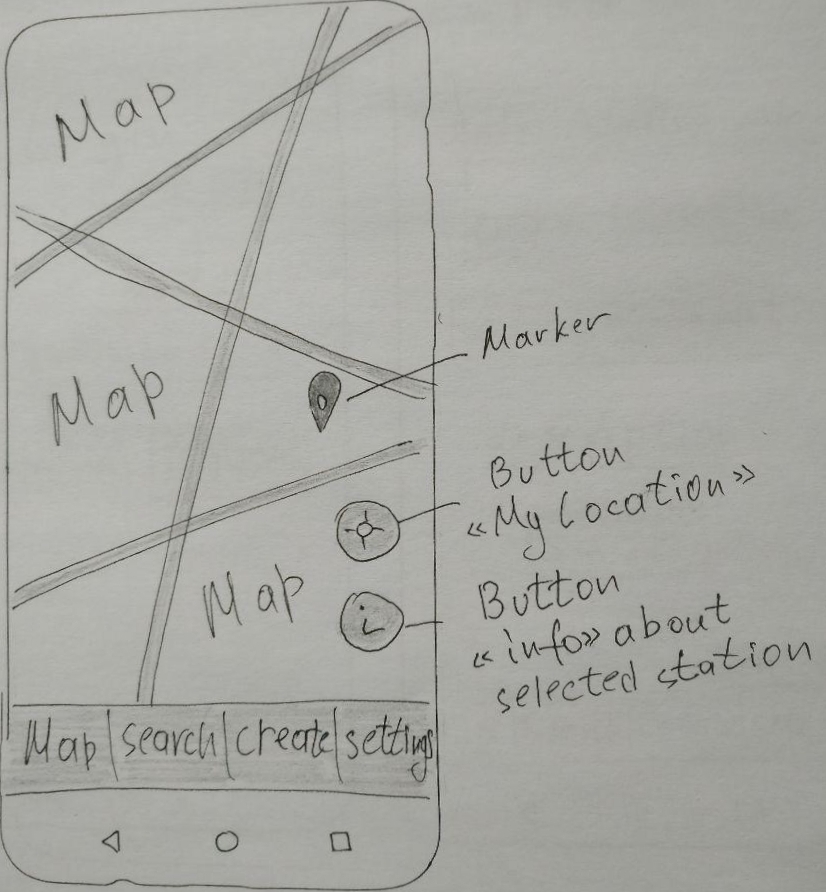 Map
Marker
Map
Button
«My location»
Map
Button
«info» about
selected station
i
Map search create settings